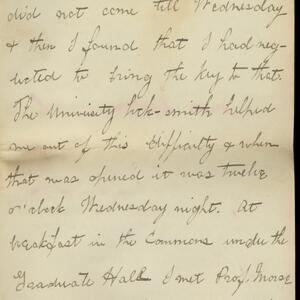 did not come till Wednesday
& then I found that I had neg-
lected to bring the key to that.
The University lock-smith helped
me out of this difficulty & when
that was opened it was twelve
o'clock Wednesday night. At
breakfast in the Commons under the
Graduate Hall I met Prof. Morse